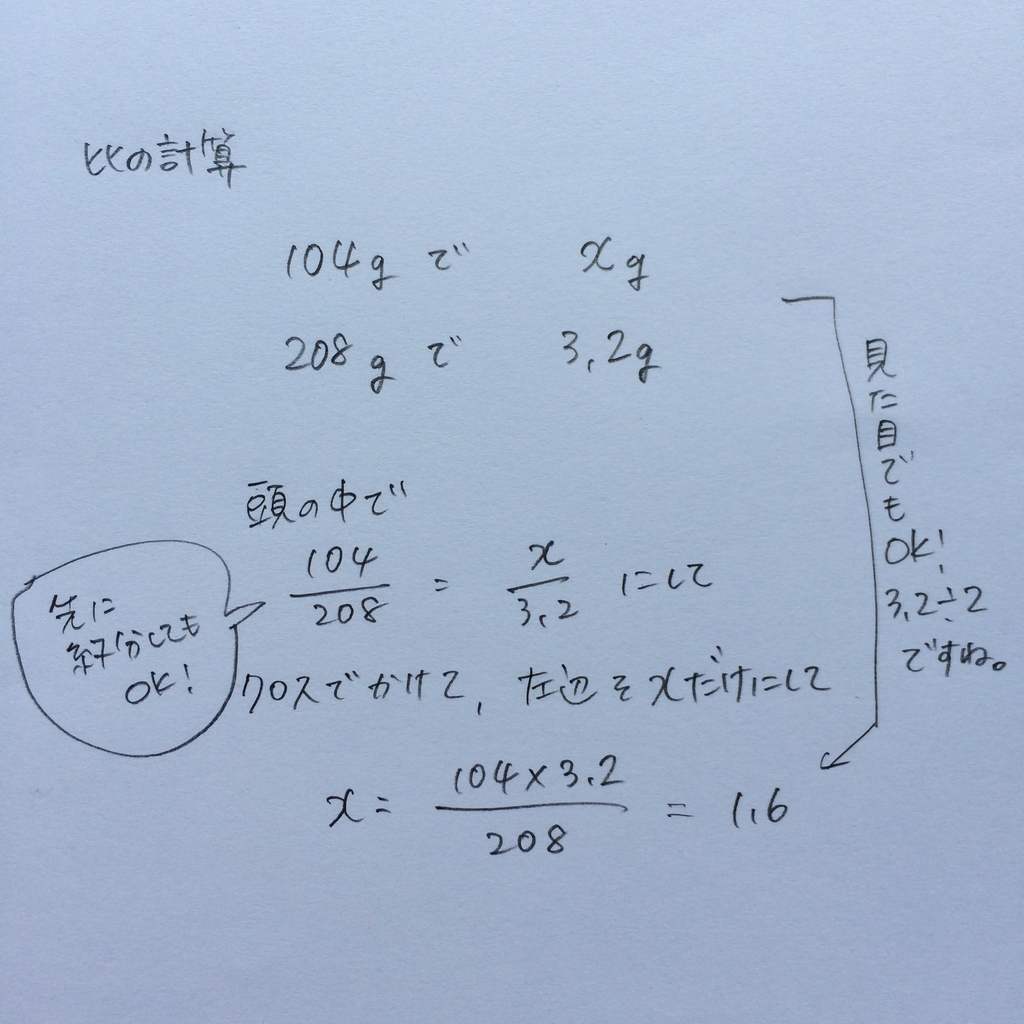 比の計算
104g で xg
208g で 3.2g
見た目でも
OK!
3.2÷2
ですね。
頭の中で
104/208 = x/3.2 にして
先に
約分しても
OK!
クロスでかけて、左辺をxだけにして
x = 104×3.2/208 = 1.6